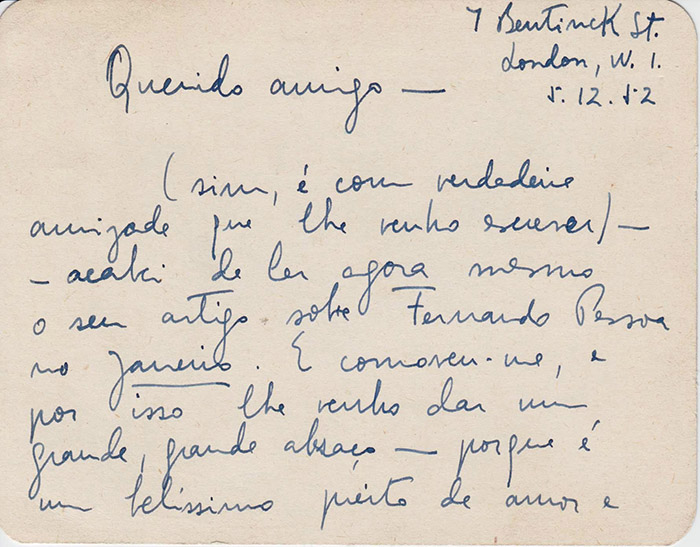 7 Bentinck St.
London, W. 1.
5. 12. 52
Querido amigo —
(sim, é com verdadeira
amizade que lhe venho escrever) —
— acabei de ler agora mesmo
o seu artigo sobre Fernando Pessoa
no Janeiro. E comoveu-me, e
por isso lhe venho dar um
grande, grande abraço — porque é
um belíssimo preito de amor e